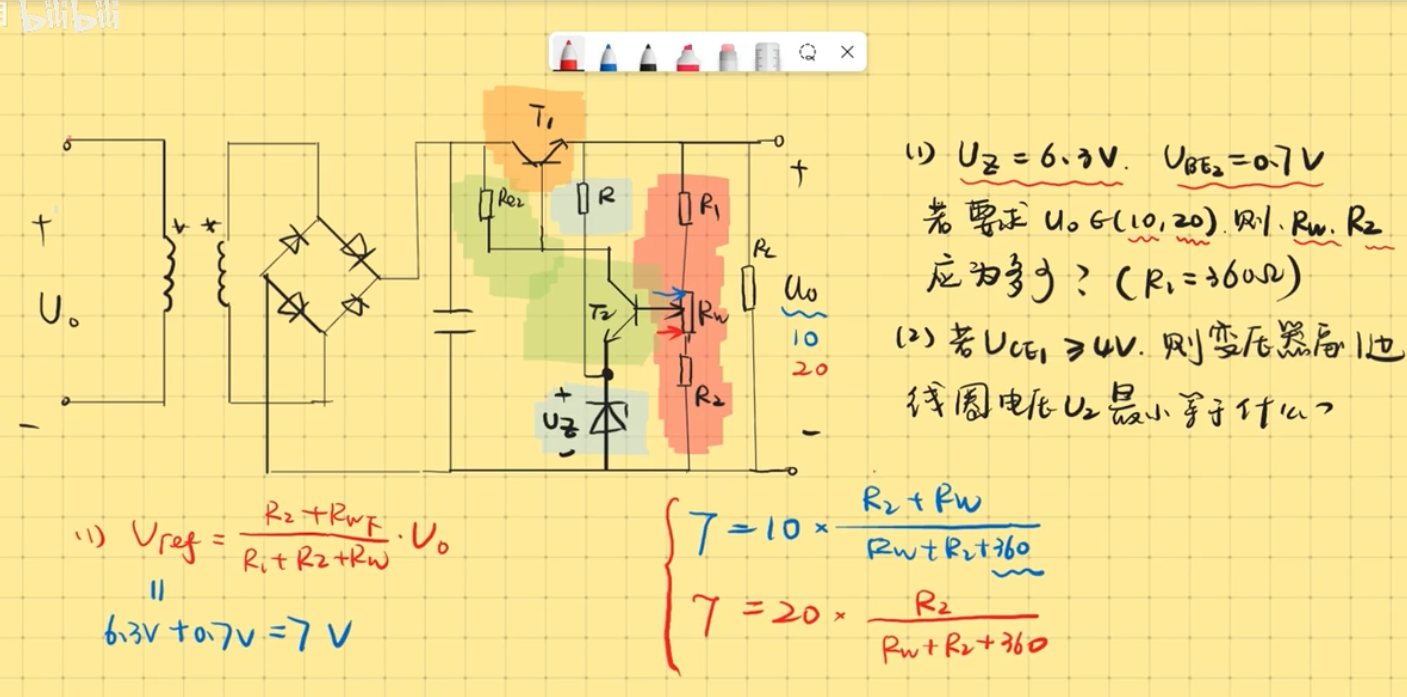 bilibili
T₁
Re₂
R
R₁
RL
T₂
RW
R₂
+
UZ
-
+
U₀
-
* *
+
U₀
10
20
-
(1) UZ = 6.3V. UBE₂ = 0.7V
若要求 U₀∈(10,20). 则. RW. R₂
应为多少? (R₁=360Ω)
(2) 若 UCE₁ ≥ 4V. 则变压器副边
线圈电压 U₂ 最小等于什么?
(1) Vref = (R₂+RW下)/(R₁+R₂+RW) · U₀
||
6.3V + 0.7V = 7V
7 = 10 × (R₂+RW)/(RW+R₂+360)
7 = 20 × R₂/(RW+R₂+360)